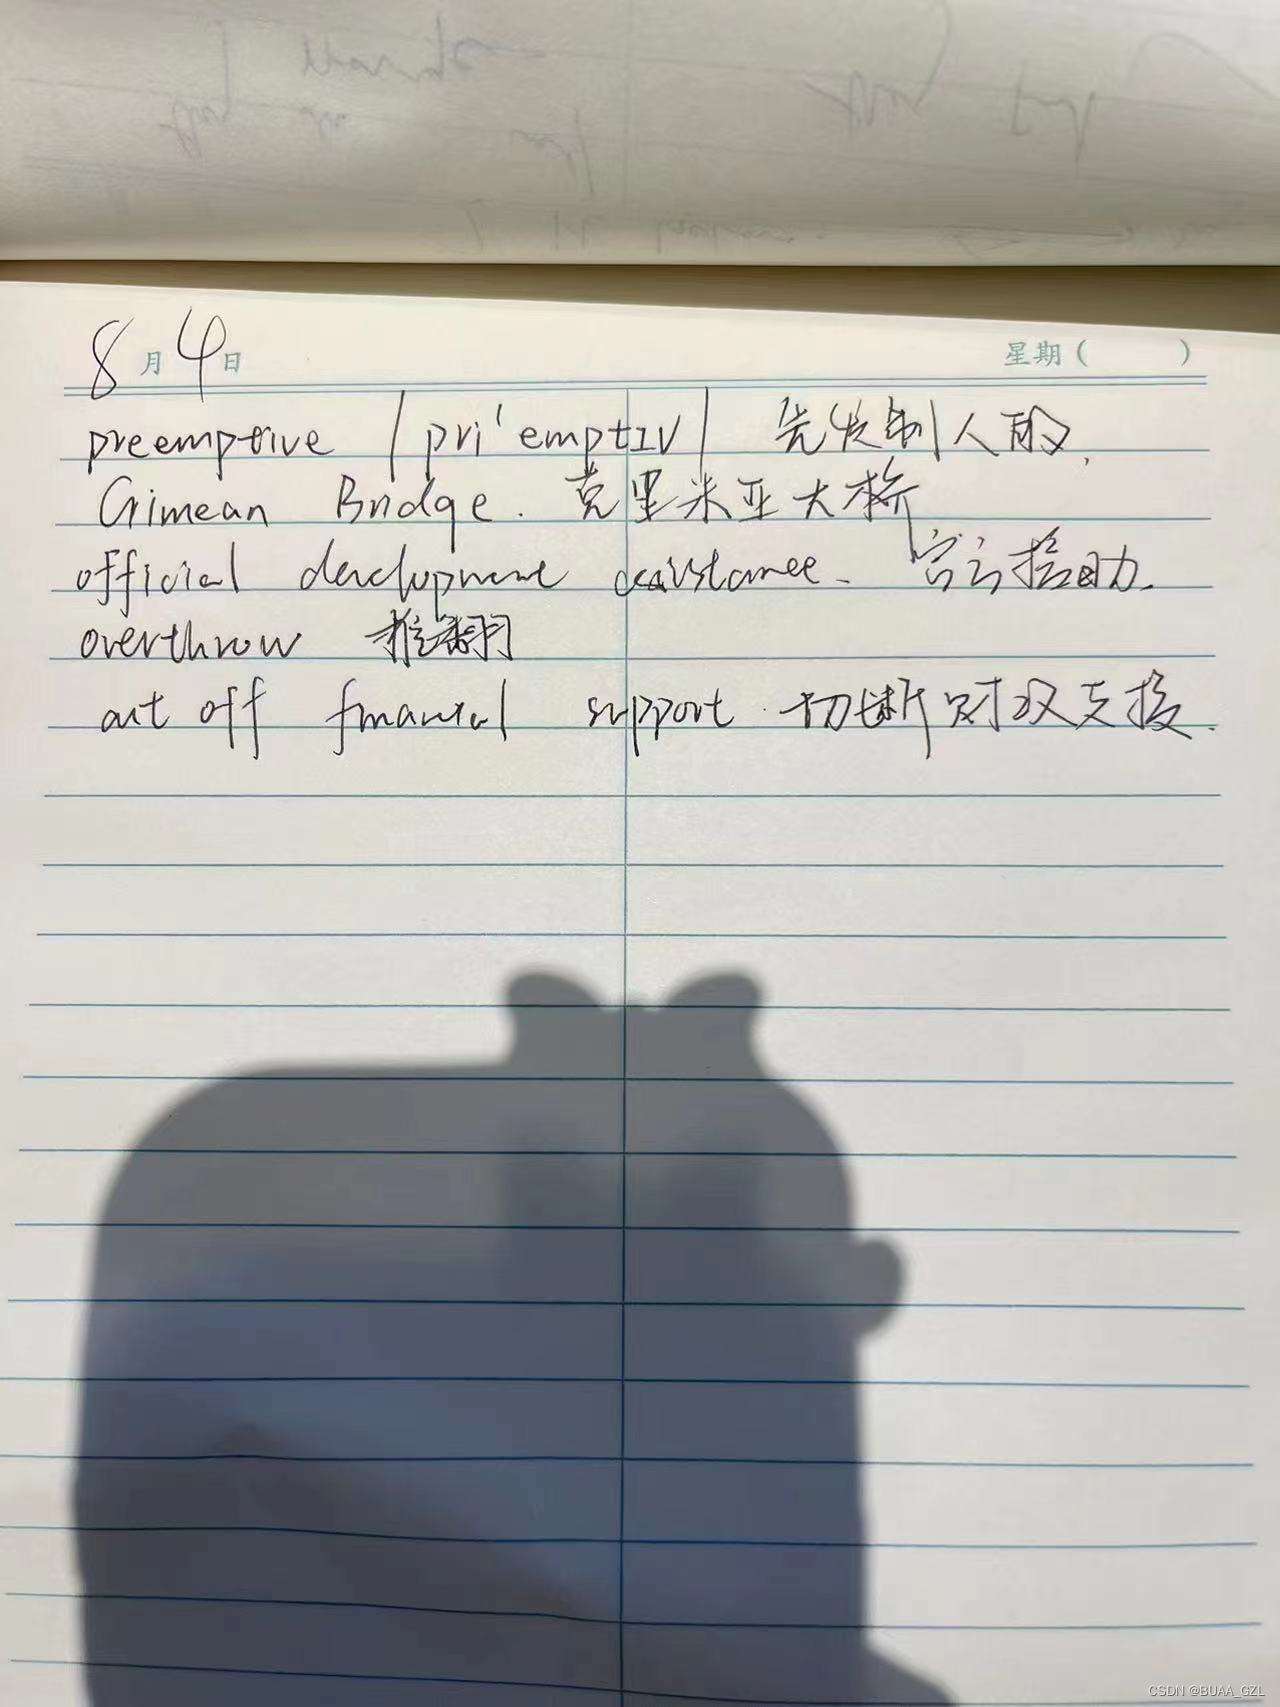 8月4日 星期( )
preemptive /pri'emptIV/ 先发制人的,
Crimean Bridge. 克里米亚大桥
official development assistance. 官方援助.
overthrow 推翻
cut off financial support. 切断财政支援.
CSDN @BUAA_GZL